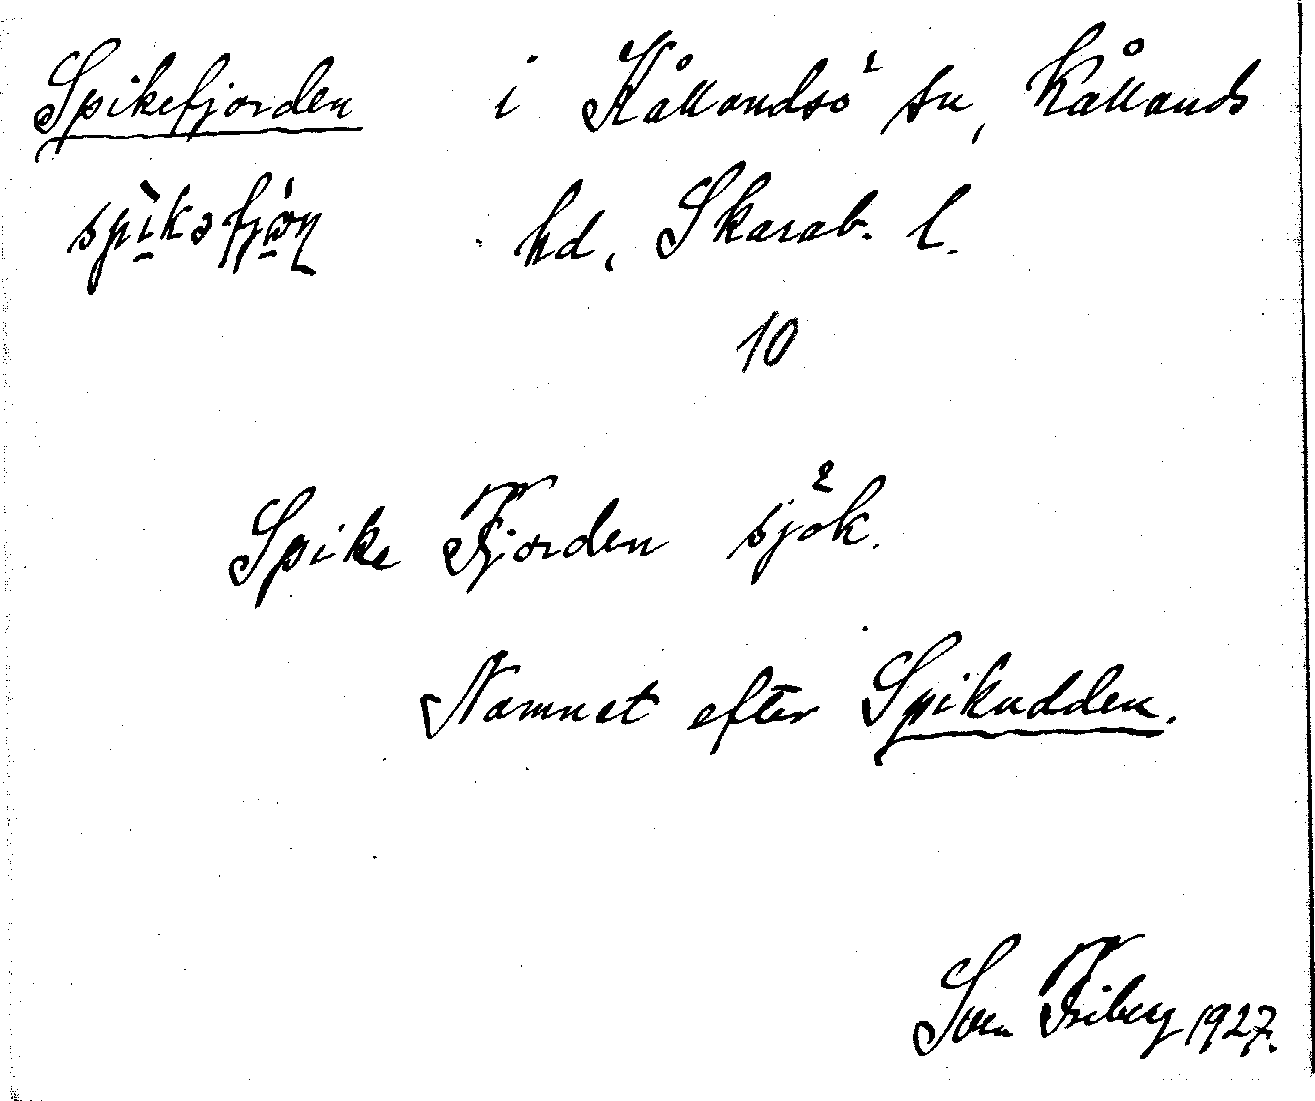 Spikefjorden i Kållandsö sn, Kållands
hd, Skarab. l.
10
Spike Fjorden sjök.
Namnet efter Spikudden.
Sven Friberg 1927.